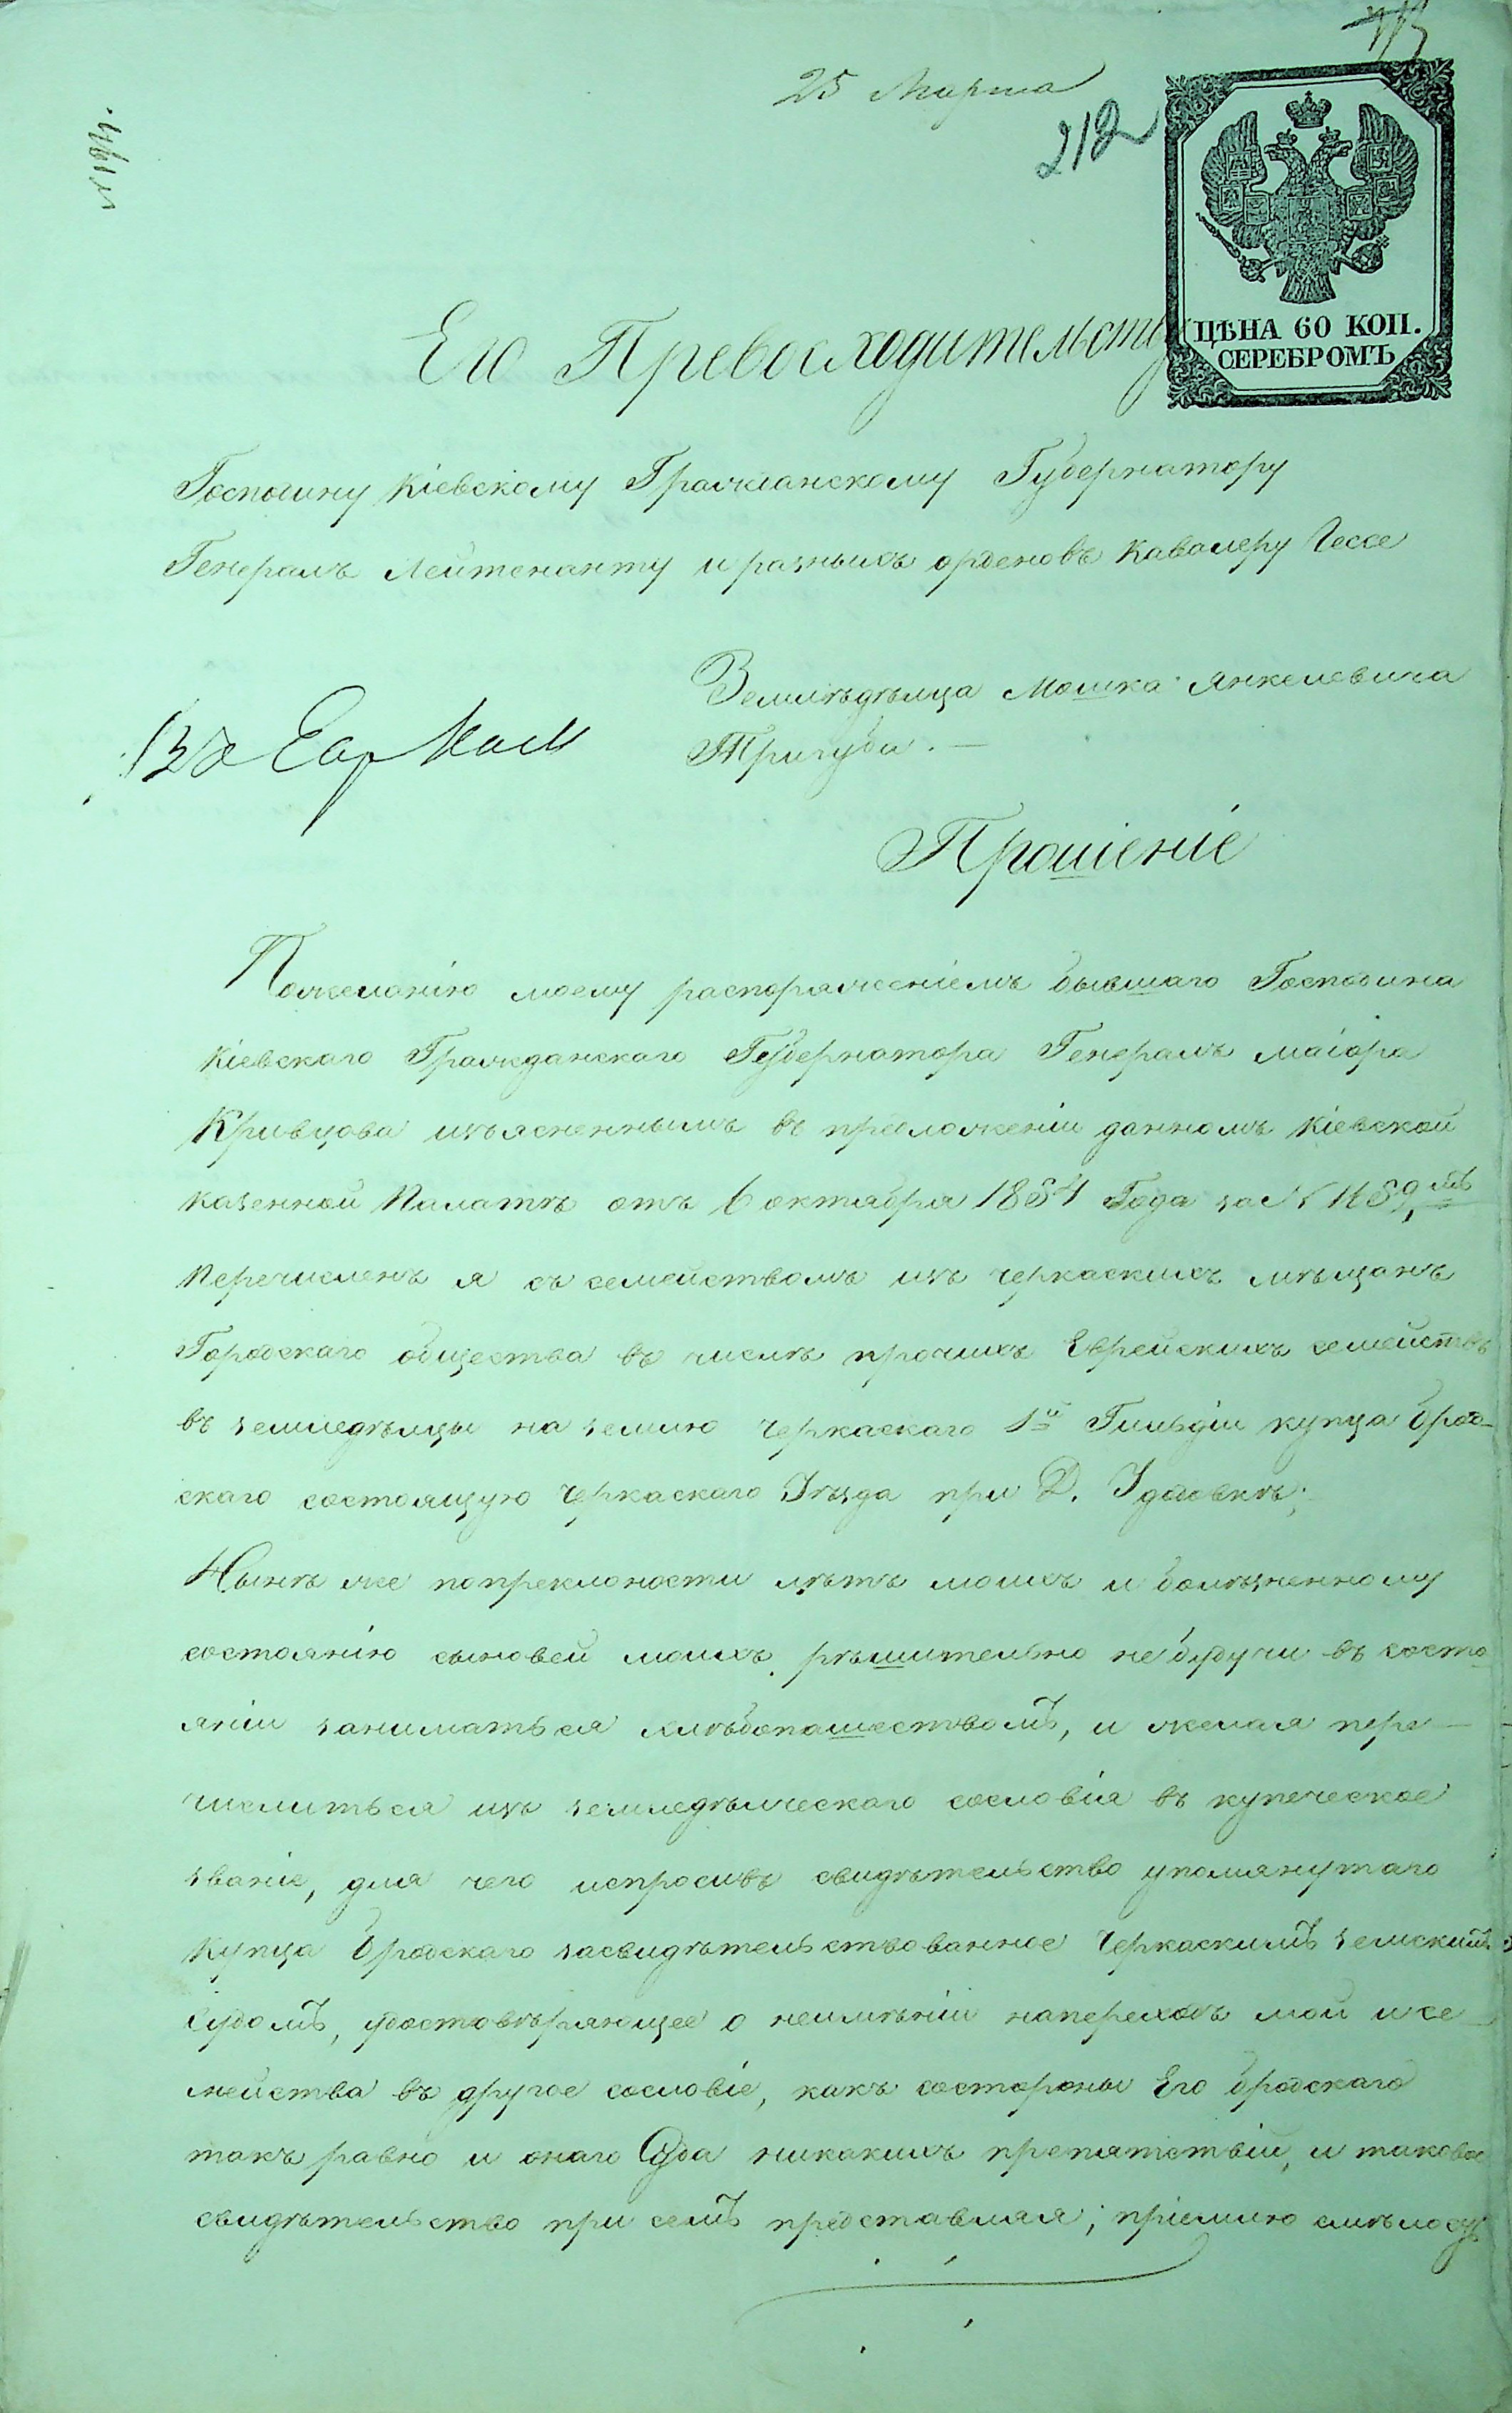 25 Марта
212
ЦѢНА 60 КОП.
СЕРЕБРОМЪ
Его Превосходительству
Господину Кіевскому Гражданскому Губернатору
Генералъ Лейтенанту и разныхъ орденовъ Кавалеру Гессе
Землѣдѣльца Мошка Янкелевича
Тригуба. —
Прошеніе
Пожеланію моему распоряженіемъ бывшаго Господина
Кіевскаго Гражданскаго Губернатора Генералъ маіора
Кривцова изъясненнымъ въ предложеніи данномъ Кіевской
Казенной Палатѣ отъ 6 октября 1854 Года за №
Перечисленъ я съ семействомъ изъ черкаскихъ мѣщанъ
Городскаго общества въ числѣ прочихъ Еврейскихъ семействъ
въ земледѣльцы на землю Черкаскаго 1й Гильдіи купца Брод-
скаго состоящую Черкаскаго Уѣзда при Д.
Нынѣ же попреклоности лѣтъ моихъ и болѣзненному
состоянію сыновей моихъ, рѣшительно небудучи въ состо-
яніи заниматься хлѣбопашествомъ, и желая пере-
числиться изъ земледѣльческаго сословія въ купеческое
званіе, для чего испросивъ свидѣтельство упомянутаго
Купца Бродскаго засвидѣтельствованное Черкаскимъ Земскимъ
Судомъ, удостовѣряющее о неимѣніи напереходъ мой и се-
мейства въ другое сословіе, какъ состороны Его Бродскаго
такъ равно и онаго Суда никакихъ препятствій, и таковое
свидѣтельство при семъ представляя; пріемлю смѣлость